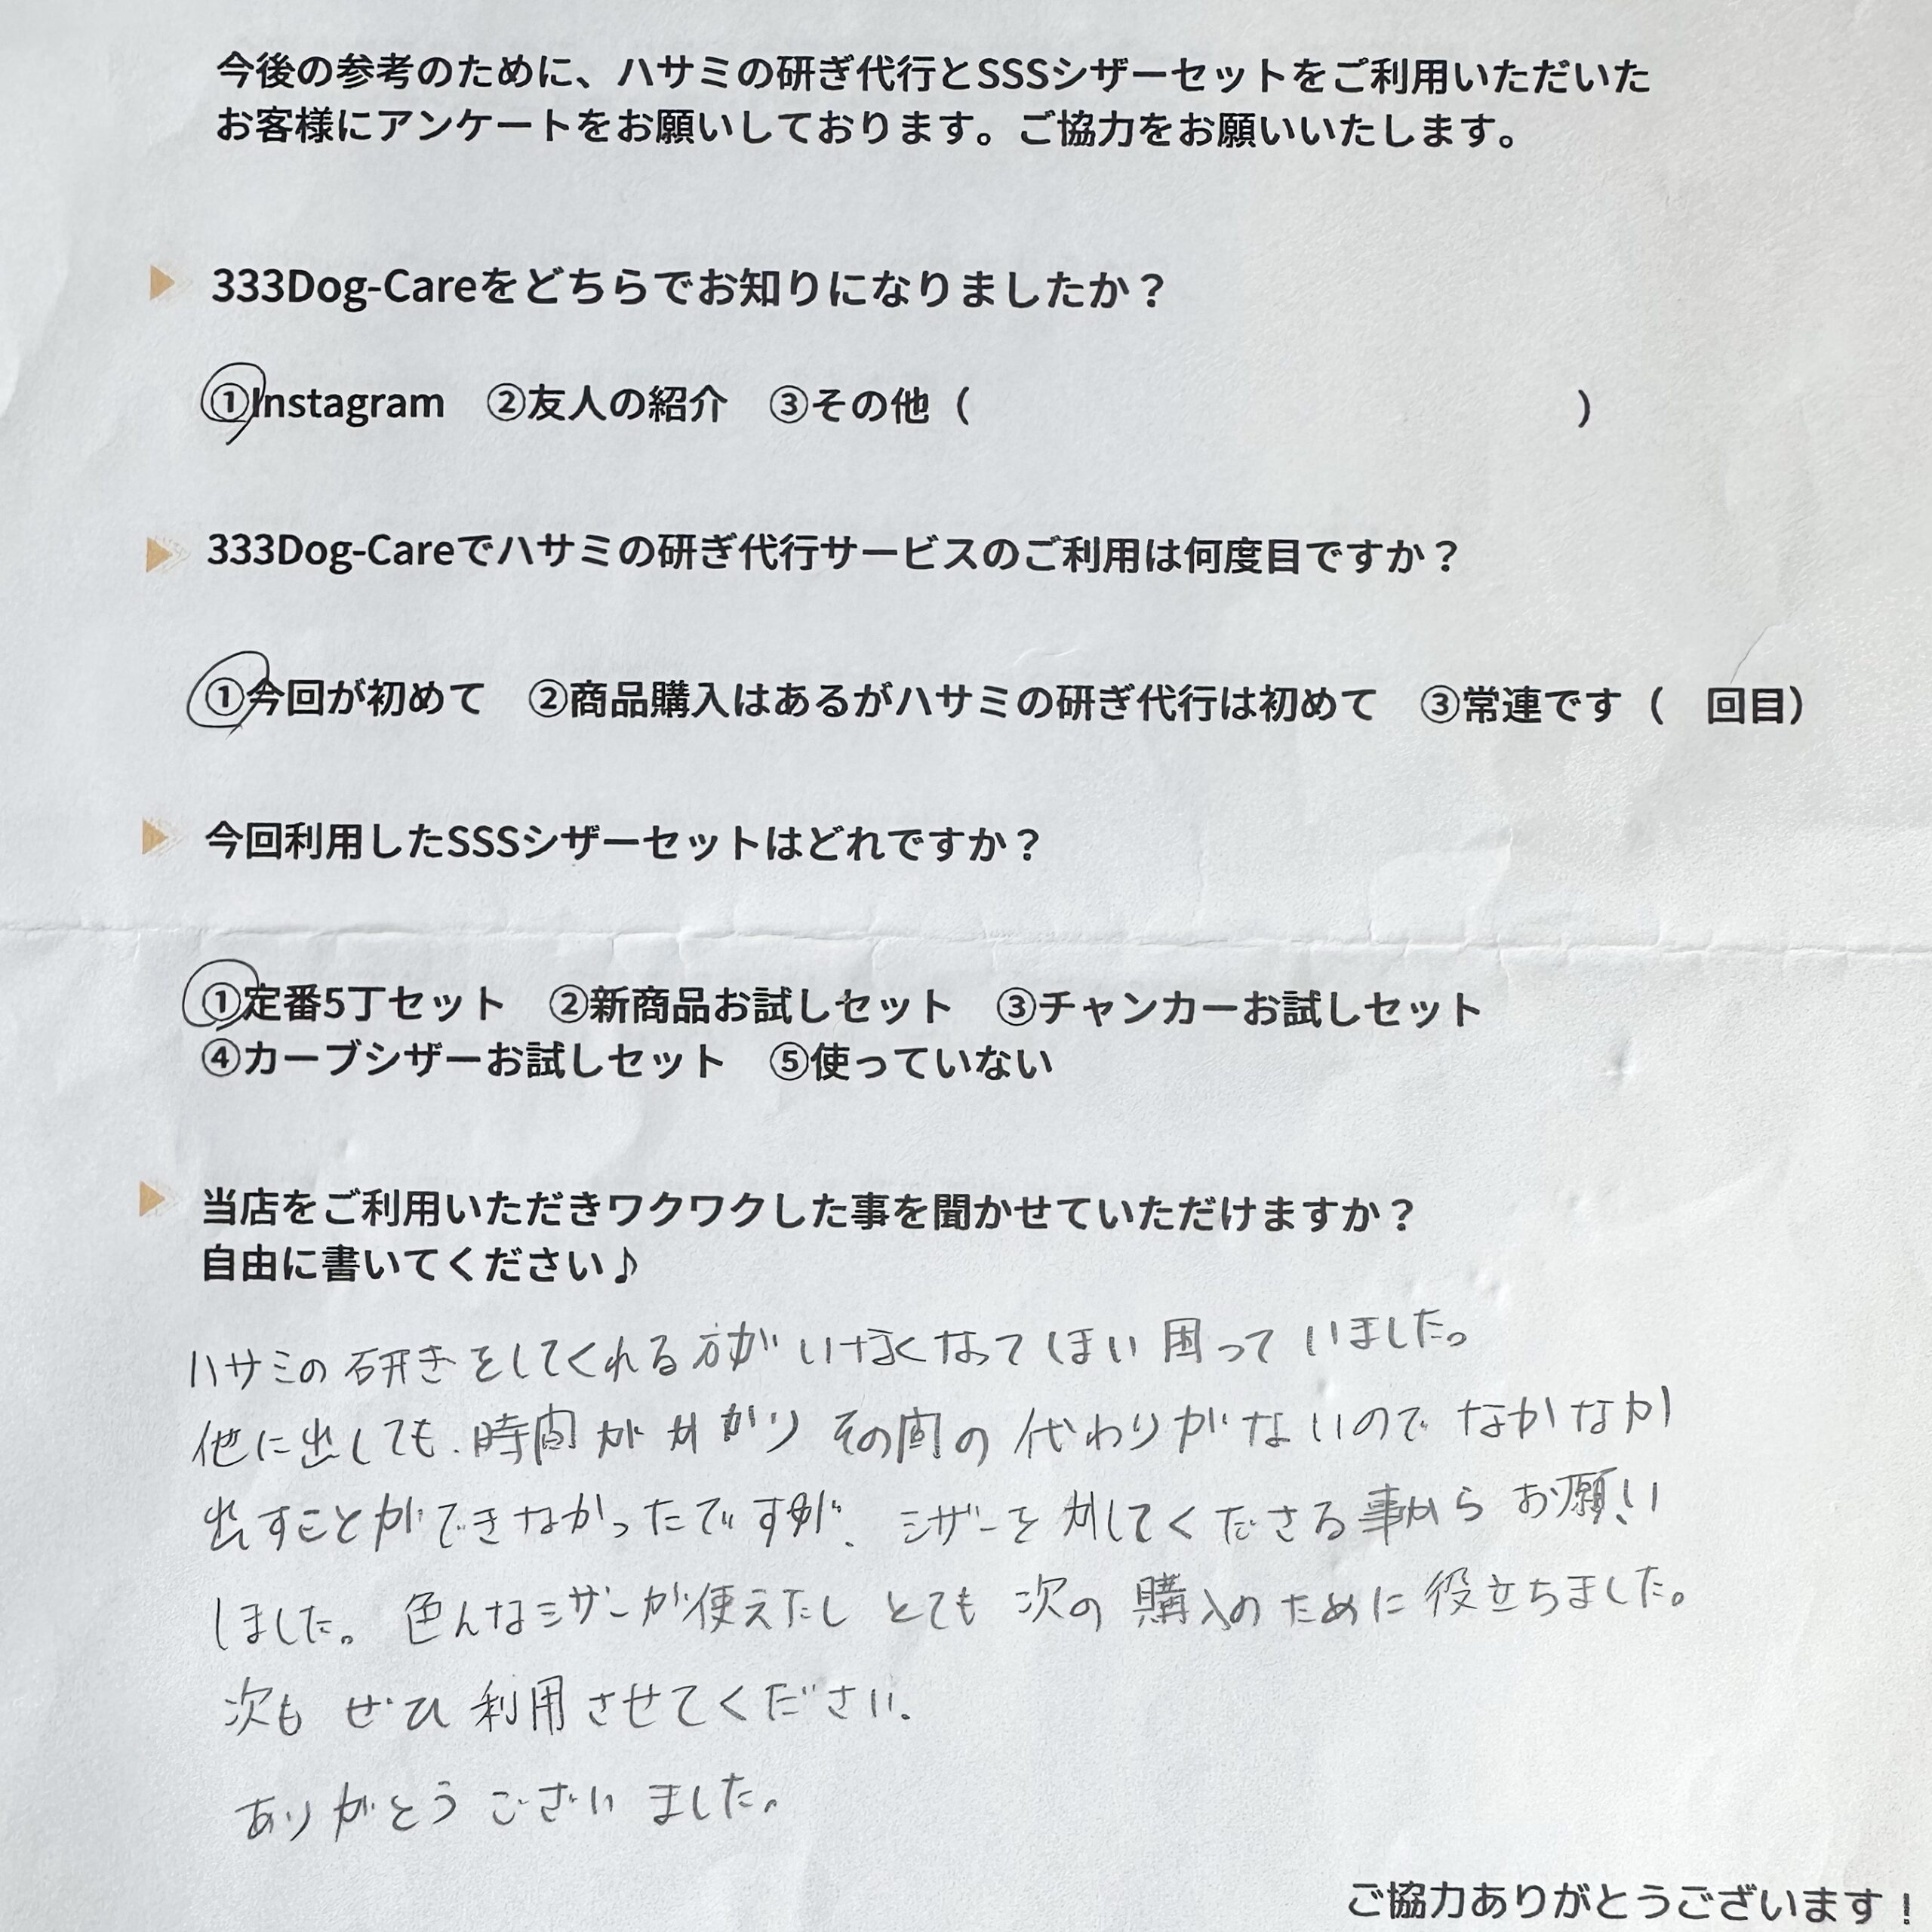 今後の参考のために、ハサミの研ぎ代行とSSSシザーセットをご利用いただいた
お客様にアンケートをお願いしております。ご協力をお願いいたします。
333Dog-Careをどちらでお知りになりましたか？
①Instagram ②友人の紹介 ③その他（ ）
333Dog-Careでハサミの研ぎ代行サービスのご利用は何度目ですか？
①今回が初めて ②商品購入はあるがハサミの研ぎ代行は初めて ③常連です（ 回目）
今回利用したSSSシザーセットはどれですか？
①定番5丁セット ②新商品お試しセット ③チャンカーお試しセット
④カーブシザーお試しセット ⑤使っていない
当店をご利用いただきワクワクした事を聞かせていただけますか？
自由に書いてください♪
ハサミの研ぎをしてくれる方がいなくなって 困っていました。
他に出しても、時間がかかり その間の代わりがないので なかなか
出すことができなかったですが、シザーを してくださる事から お願い
しました。色んなシザーが使えたし とても 次の購入のために役立ちました。
次も ぜひ 利用させてください。
ありがとうございました。
ご協力ありがとうございます！